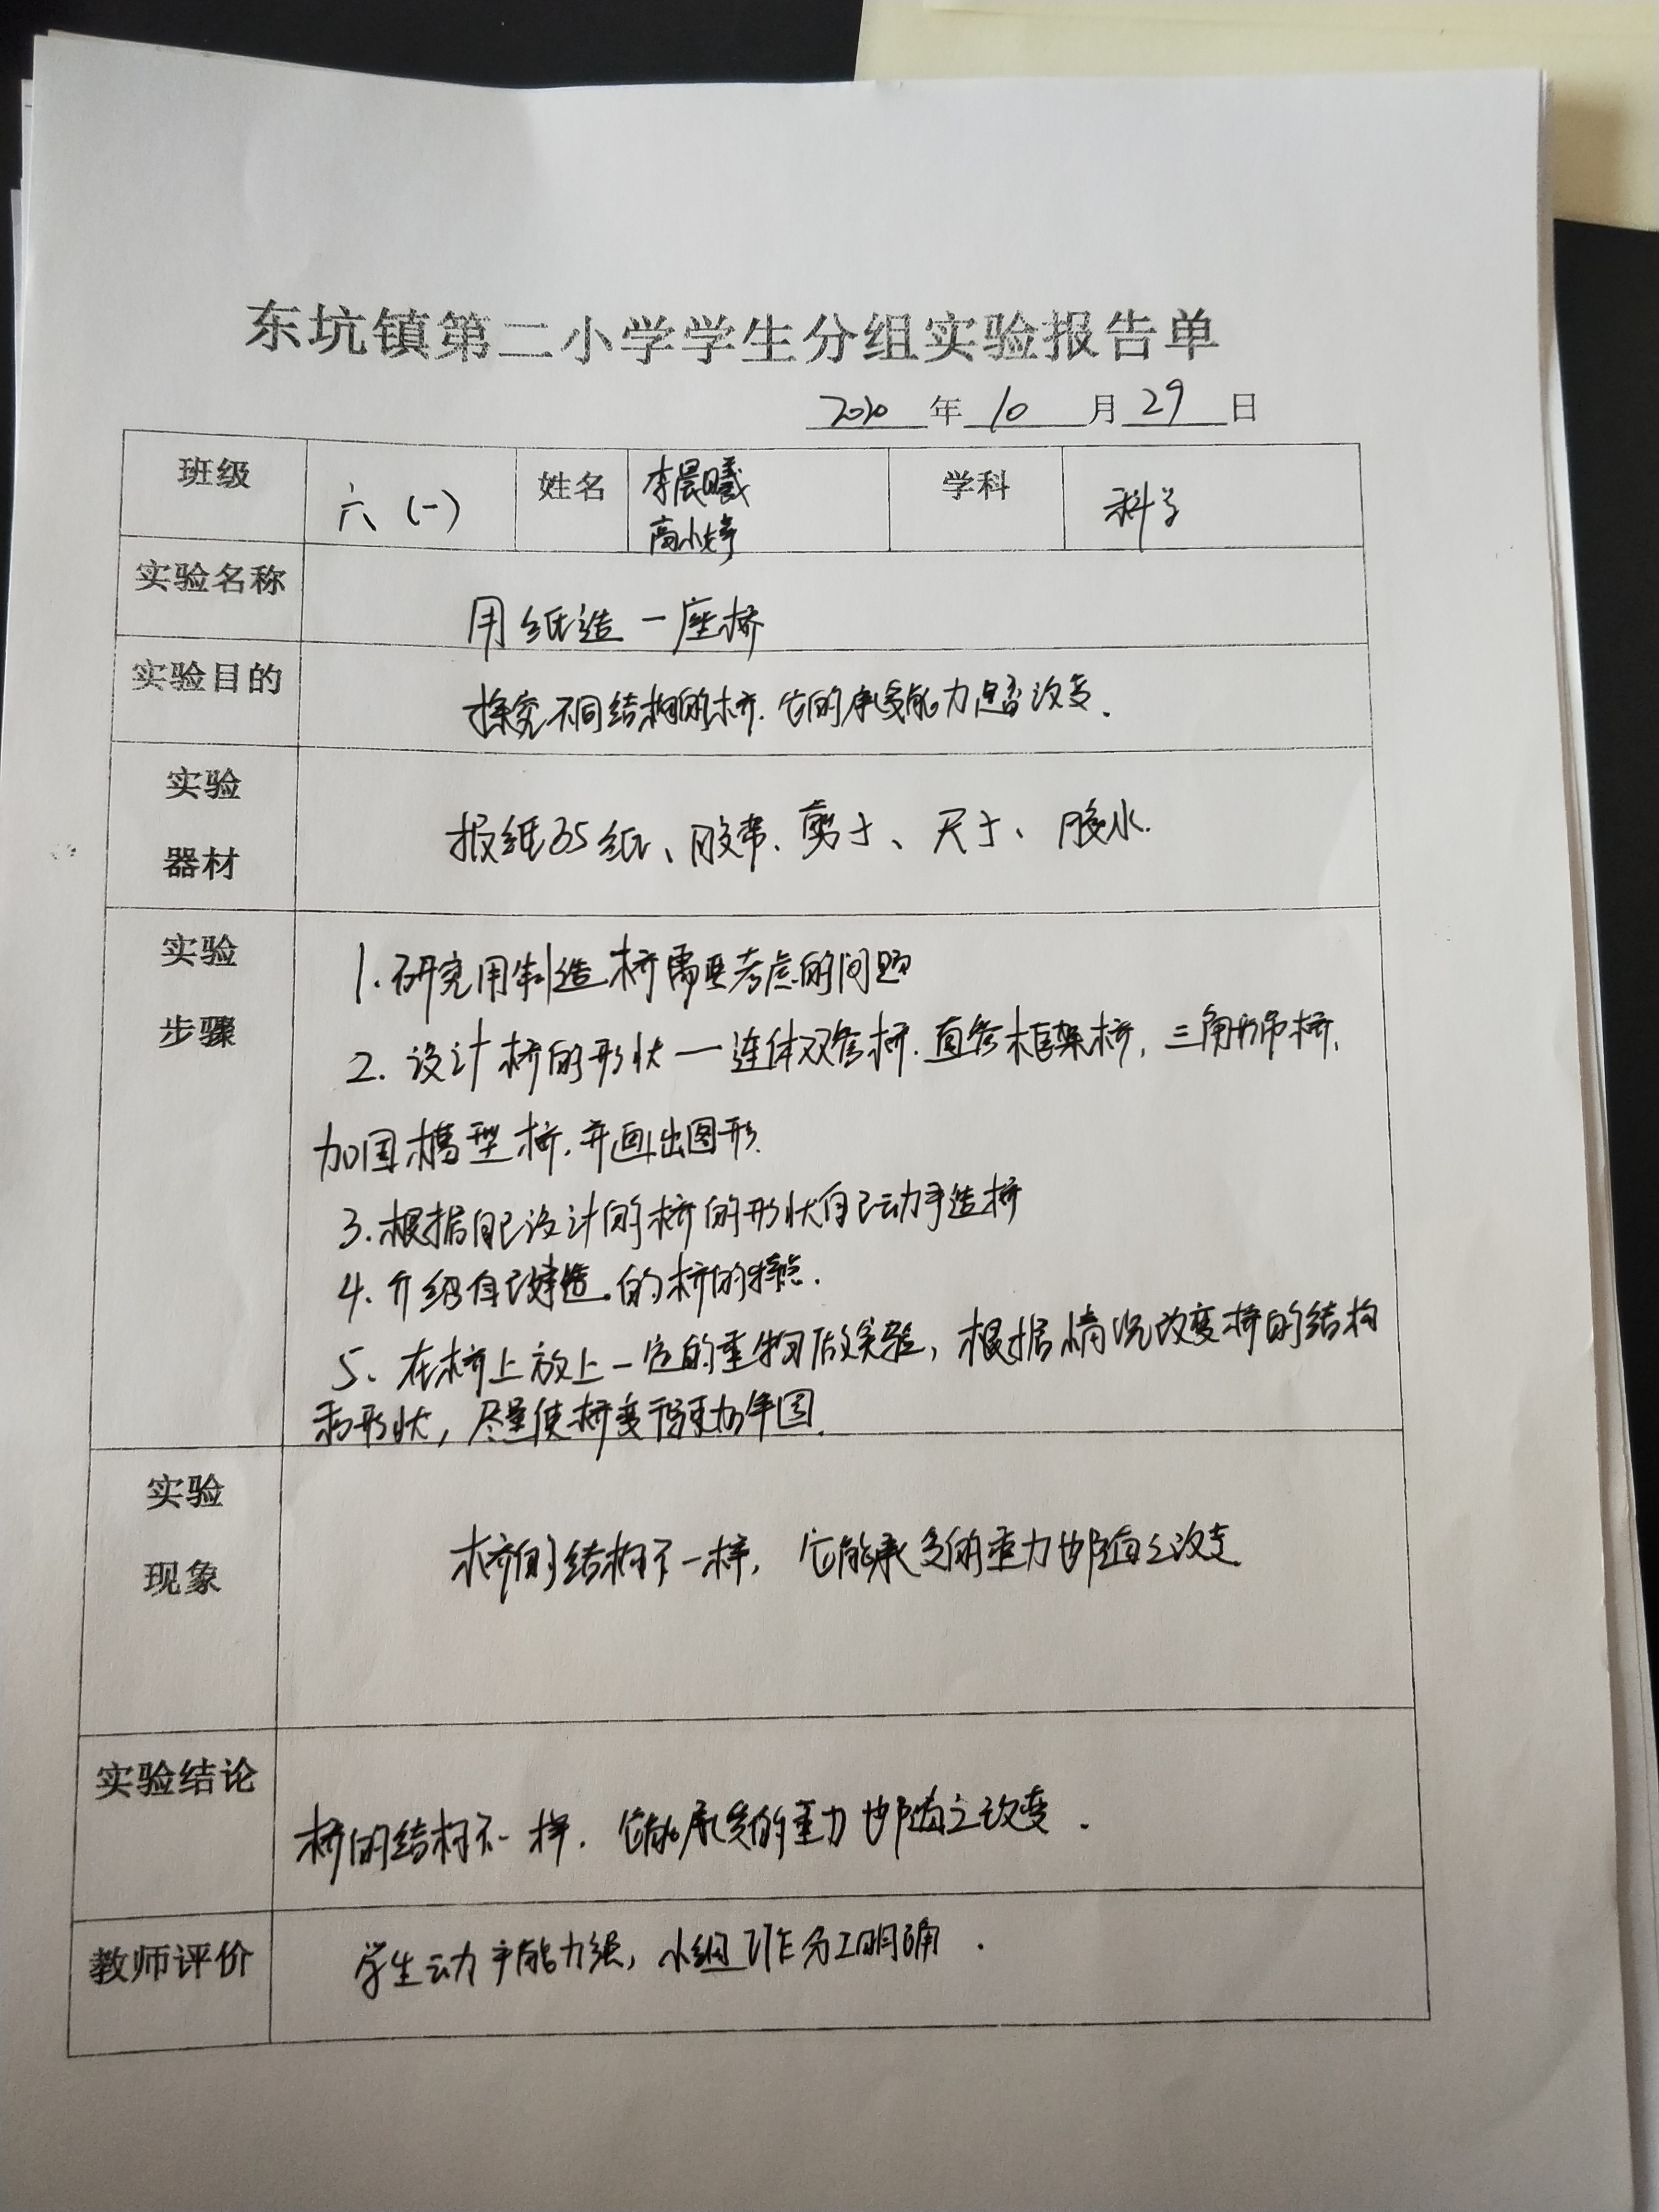 东坑镇第二小学学生分组实验报告单
2020 年 10 月 29 日
班级 六(一) 姓名 李晨曦 高小婷 学科 科学
实验名称 用纸造一座桥
实验目的 探究不同结构的桥.它的承受能力是否改变.
实验器材 报纸35纸、胶带.剪子、尺子、胶水.
实验步骤
1.研究用制造桥需要考虑的问题
2.设计桥的形状一连体双管桥.直管框架桥,三角形吊桥,
加固模型桥.并画出图形.
3.根据自己设计的桥的形状自己动手造桥
4.介绍自己建造的桥的特点.
5、在桥上放上一定的重物做实验,根据情况改变桥的结构
和形状,尽量使桥变得更加牢固.
实验现象 桥的结构不一样,它能承受的重力也随之改变
实验结论 桥的结构不一样.它能承受的重力也随之改变.
教师评价 学生动手能力强,小组工作分工明确.